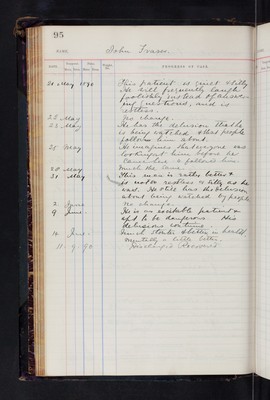 95
NAME John Fraser.
DATE PROGRESS OF CASE.
21 May 1890 This patient is quiet & silly
He will frequently laugh
foolishly instead of answer-
ing questions, and is
restless.
22 May No change.
23 May He has the delusion that he
is being watched & that people
follow him about.
26 May He imagines that everyone was
looking at him before he
came here & followed him.
28 May Much the same.
31 May This man is rather better &
is not so restless or silly as he
was. He still has the delusion
about being watched by people.
2 June No change.
9 June He is an excitable patient &
apt to be dangerous His
delusions continue.
16 June Much stouter & better in health
mentally a little better.
11. 9. 90 Discharged Recovered.